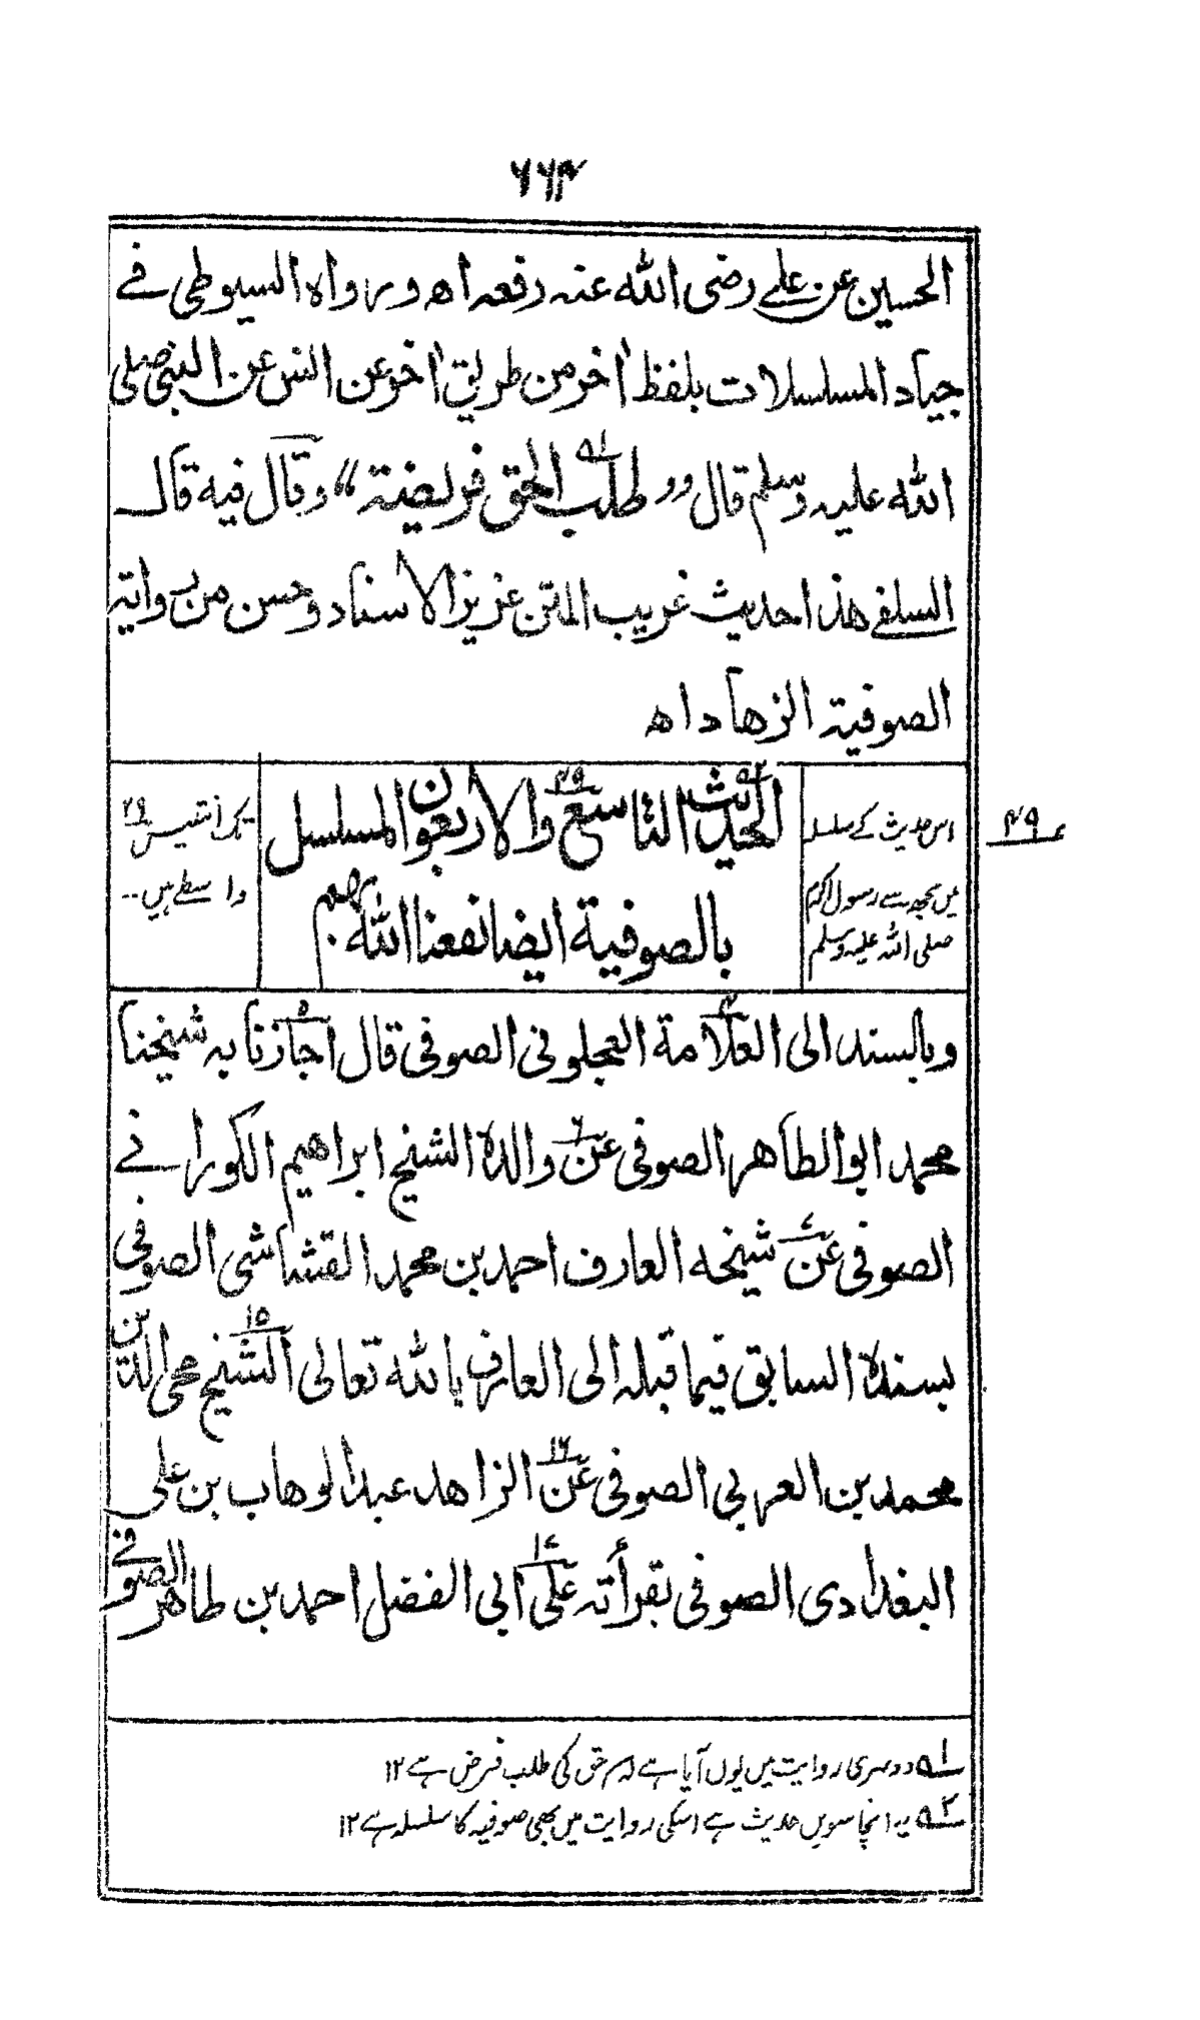 ۶۶۴
الحسین عن علی رضی اللہ عنہ رفعہ اھ ورواہ السیوطی فے
جیاد المسلسلات بلفظ اٰخر من طریق اٰخر عن انس عن النبی صلی
اللہ علیہ وسلم قال وو طلب الحق فریضۃ ،، وقال فیہ قال
السلفی ھذا حدیث غریب المتن عزیز الاسناد وحسن من روایۃ
الصوفیۃ الزھاد اھ
۴۹
الحدیث التاسع والاربعون المسلسل
بالصوفیۃ ایضا نفعنا اللہ بھم
اس حدیث کے سلسلہ
میں مجھ سے رسول اکرم
صلی اللہ علیہ وسلم
تک انتیس ۲۹
واسطے ہیں۔۔
وبالسند الی العلامۃ العجلونی الصوفی قال اجازنا بہ شیخنا
محمد ابو الطاھر الصوفی عن والدہ الشیخ ابراھیم الکورانے
الصوفی عن شیخہ العارف احمد بن محمد القشاشی الصوفی
بسندہ السابق فیما قبلہ الی العارف باللہ تعالی الشیخ محی الدین
محمد بن العربی الصوفی عن الزاھد عبد الوھاب بن علی
البغدادی الصوفی بقرأتہ علی ابی الفضل احمد بن طاھر الصوفی
۱ دوسری روایت میں یوں آیا ہے امر حق کی طلب فرض ہے ۱۲
۲ یہ انچاسویں حدیث ہے اسکی روایت میں بھی صوفیہ کا سلسلہ ہے ۱۲